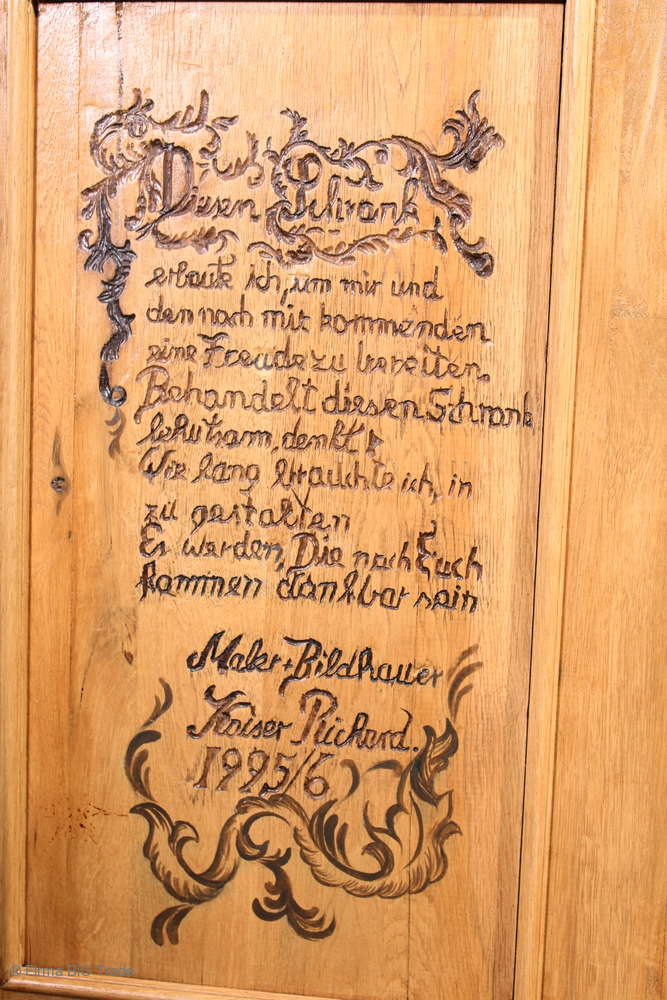 Diesen Schrank
erbaute ich, um mir und
den nach mir kommenden
eine Freude zu bereiten.
Behandelt diesen Schrank
behutsam, denkt
Wie lang brauchte ich, in
zu gestalten
Es werden, Die nach Euch
kommen dankbar sein
Maler + Bildhauer
Kaiser Richard.
1995/6
© Firma BRS Trade